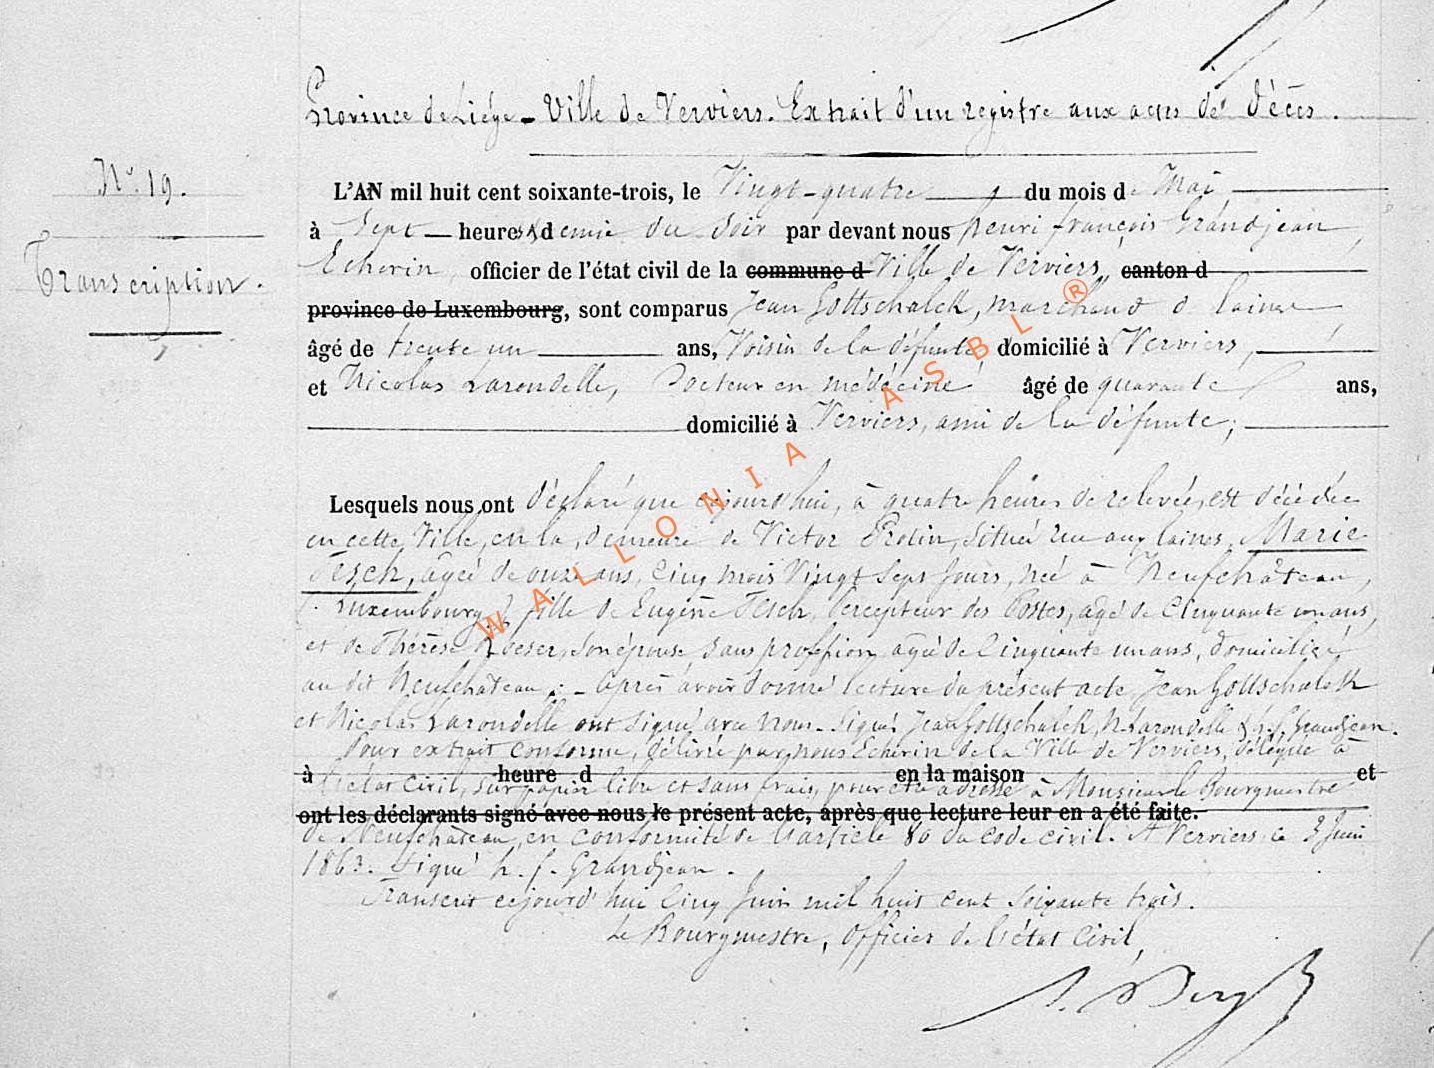 Province de Liége - Ville de Verviers. Extrait d'un registre aux actes de décès.
N° 19.
Transcription.
L'AN mil huit cent soixante-trois, le Vingt-quatre du mois de Mai
à Sept heures & demie du Soir par devant nous henri françois Grandjean,
Echevin, officier de l'état civil de la commune d Ville de Verviers, canton d
province de Luxembourg, sont comparus Jean Gottschalck, marchand de laines
âgé de trente un ans, Voisin de la défunte, domicilié à Verviers,
et Nicolas Larondelle, Docteur en médécine âgé de quarante ans,
domicilié à Verviers, ami de la défunte;
Lesquels nous ont déclaré que cejourd'hui, à quatre heures de relevée, est décédée
en cette Ville, en la demeure de Victor située rue aux laines, Marie
Tesch, agée de onze ans, cinq mois Vingt Sept Jours, née à Neufchâteau,
(Luxembourg,) fille de Eugène Tesch, Percepteur des Postes, agé de Cinquante un ans,
et de Thérèse son épouse, sans profession agée de Cinquante un ans, domiciliée
au dit Neufchâteau; - après avoir donné lecture du présent acte, Jean Gottschalck
et Nicolas Larondelle ont signé avec Nous. Signé, Jean Gottschalck, N. Larondelle & h. f. Grandjean.
Pour extrait conforme, délivré par nous Echevin de la Ville de Verviers, délégué à
à heure d en la maison et
l'état civil, sur papier libre et sans frais, pour être adressé à Monsieur le Bourgmestre
ont les déclarants signé avec nous le présent acte, après que lecture leur en a été faite.
de Neufchâteau, en conformité de l'article 80 du code civil. A Verviers ce 3 Juin
1863. Signé h. f. Grandjean.
Transcrit cejourd'hui Cinq Juin mil huit cent Soixante trois.
Le Bourgmestre, Officier de l'état Civil,
WALLONIA ASBL ®